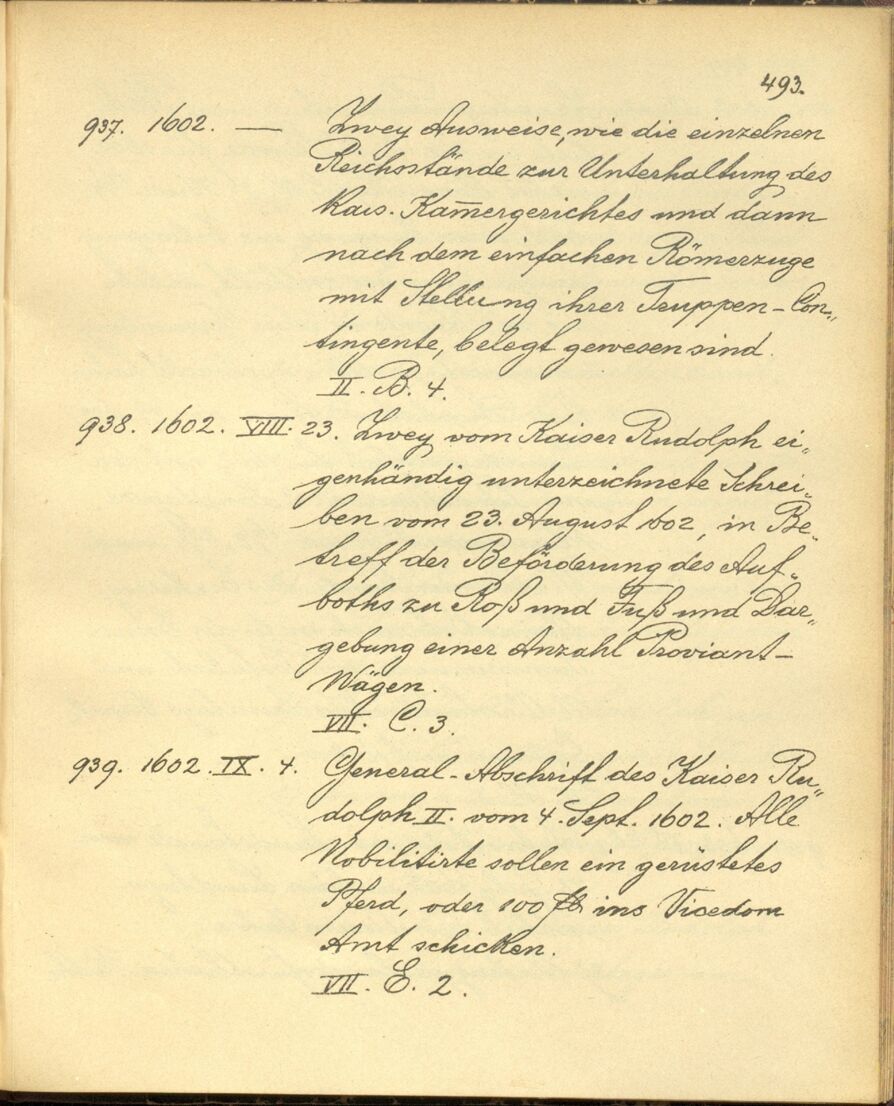 493.
937. 1602. — Zwey Ausweise, wie die einzelnen
Reichsstände zur Unterhaltung des
Kais. Kam̅ergerichtes und dann
nach dem einfachen Römerzuge
mit Stellung ihrer Truppen-Con„
tingente, belegt gewesen sind.
II. B. 4.
938. 1602. VIII. 23. Zwey vom Kaiser Rudolph ei„
genhändig unterzeichnete Schrei„
ben vom 23. August 602, in Be„
treff der Beförderung des Auf„
boths zu Roß und Fuß und Dar„
gebung einer Anzahl Proviant-
Wägen.
VII. C. 3.
939. 1602. IX. 4. General-Abschrift des Kaiser Ru„
dolph II. vom 4. Sept. 1602. Alle
Nobilitirte sollen ein gerüstetes
Pferd, oder 100 fl ins Vicedom
Amt schicken.
VII. E. 2.